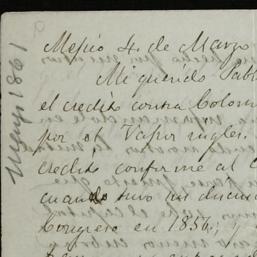 Mejico 4 de Marzo
Mi querido Pabl
el credito contra Colom
por el Vapor ingles.
credito conforme al C
cuando tuvo su discu
Congreso en 1856; y
Mayo 1861